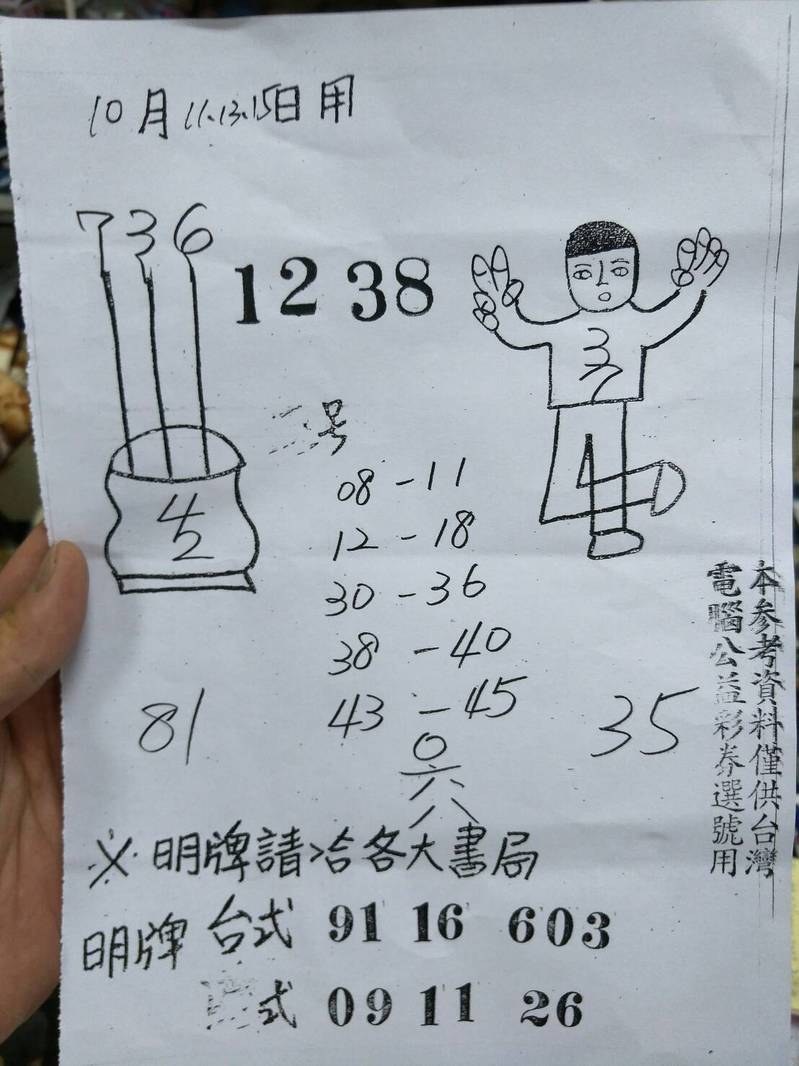 10月11.13.15日用
736
12 38
37
号
08-11
12-18
42
30-36
38-40
43-45
81
35
0六八
本参考資料僅供台灣
電腦公益彩券選號用
※明牌請洽各大書局
明牌 台式 91 16 603
式 09 11 26